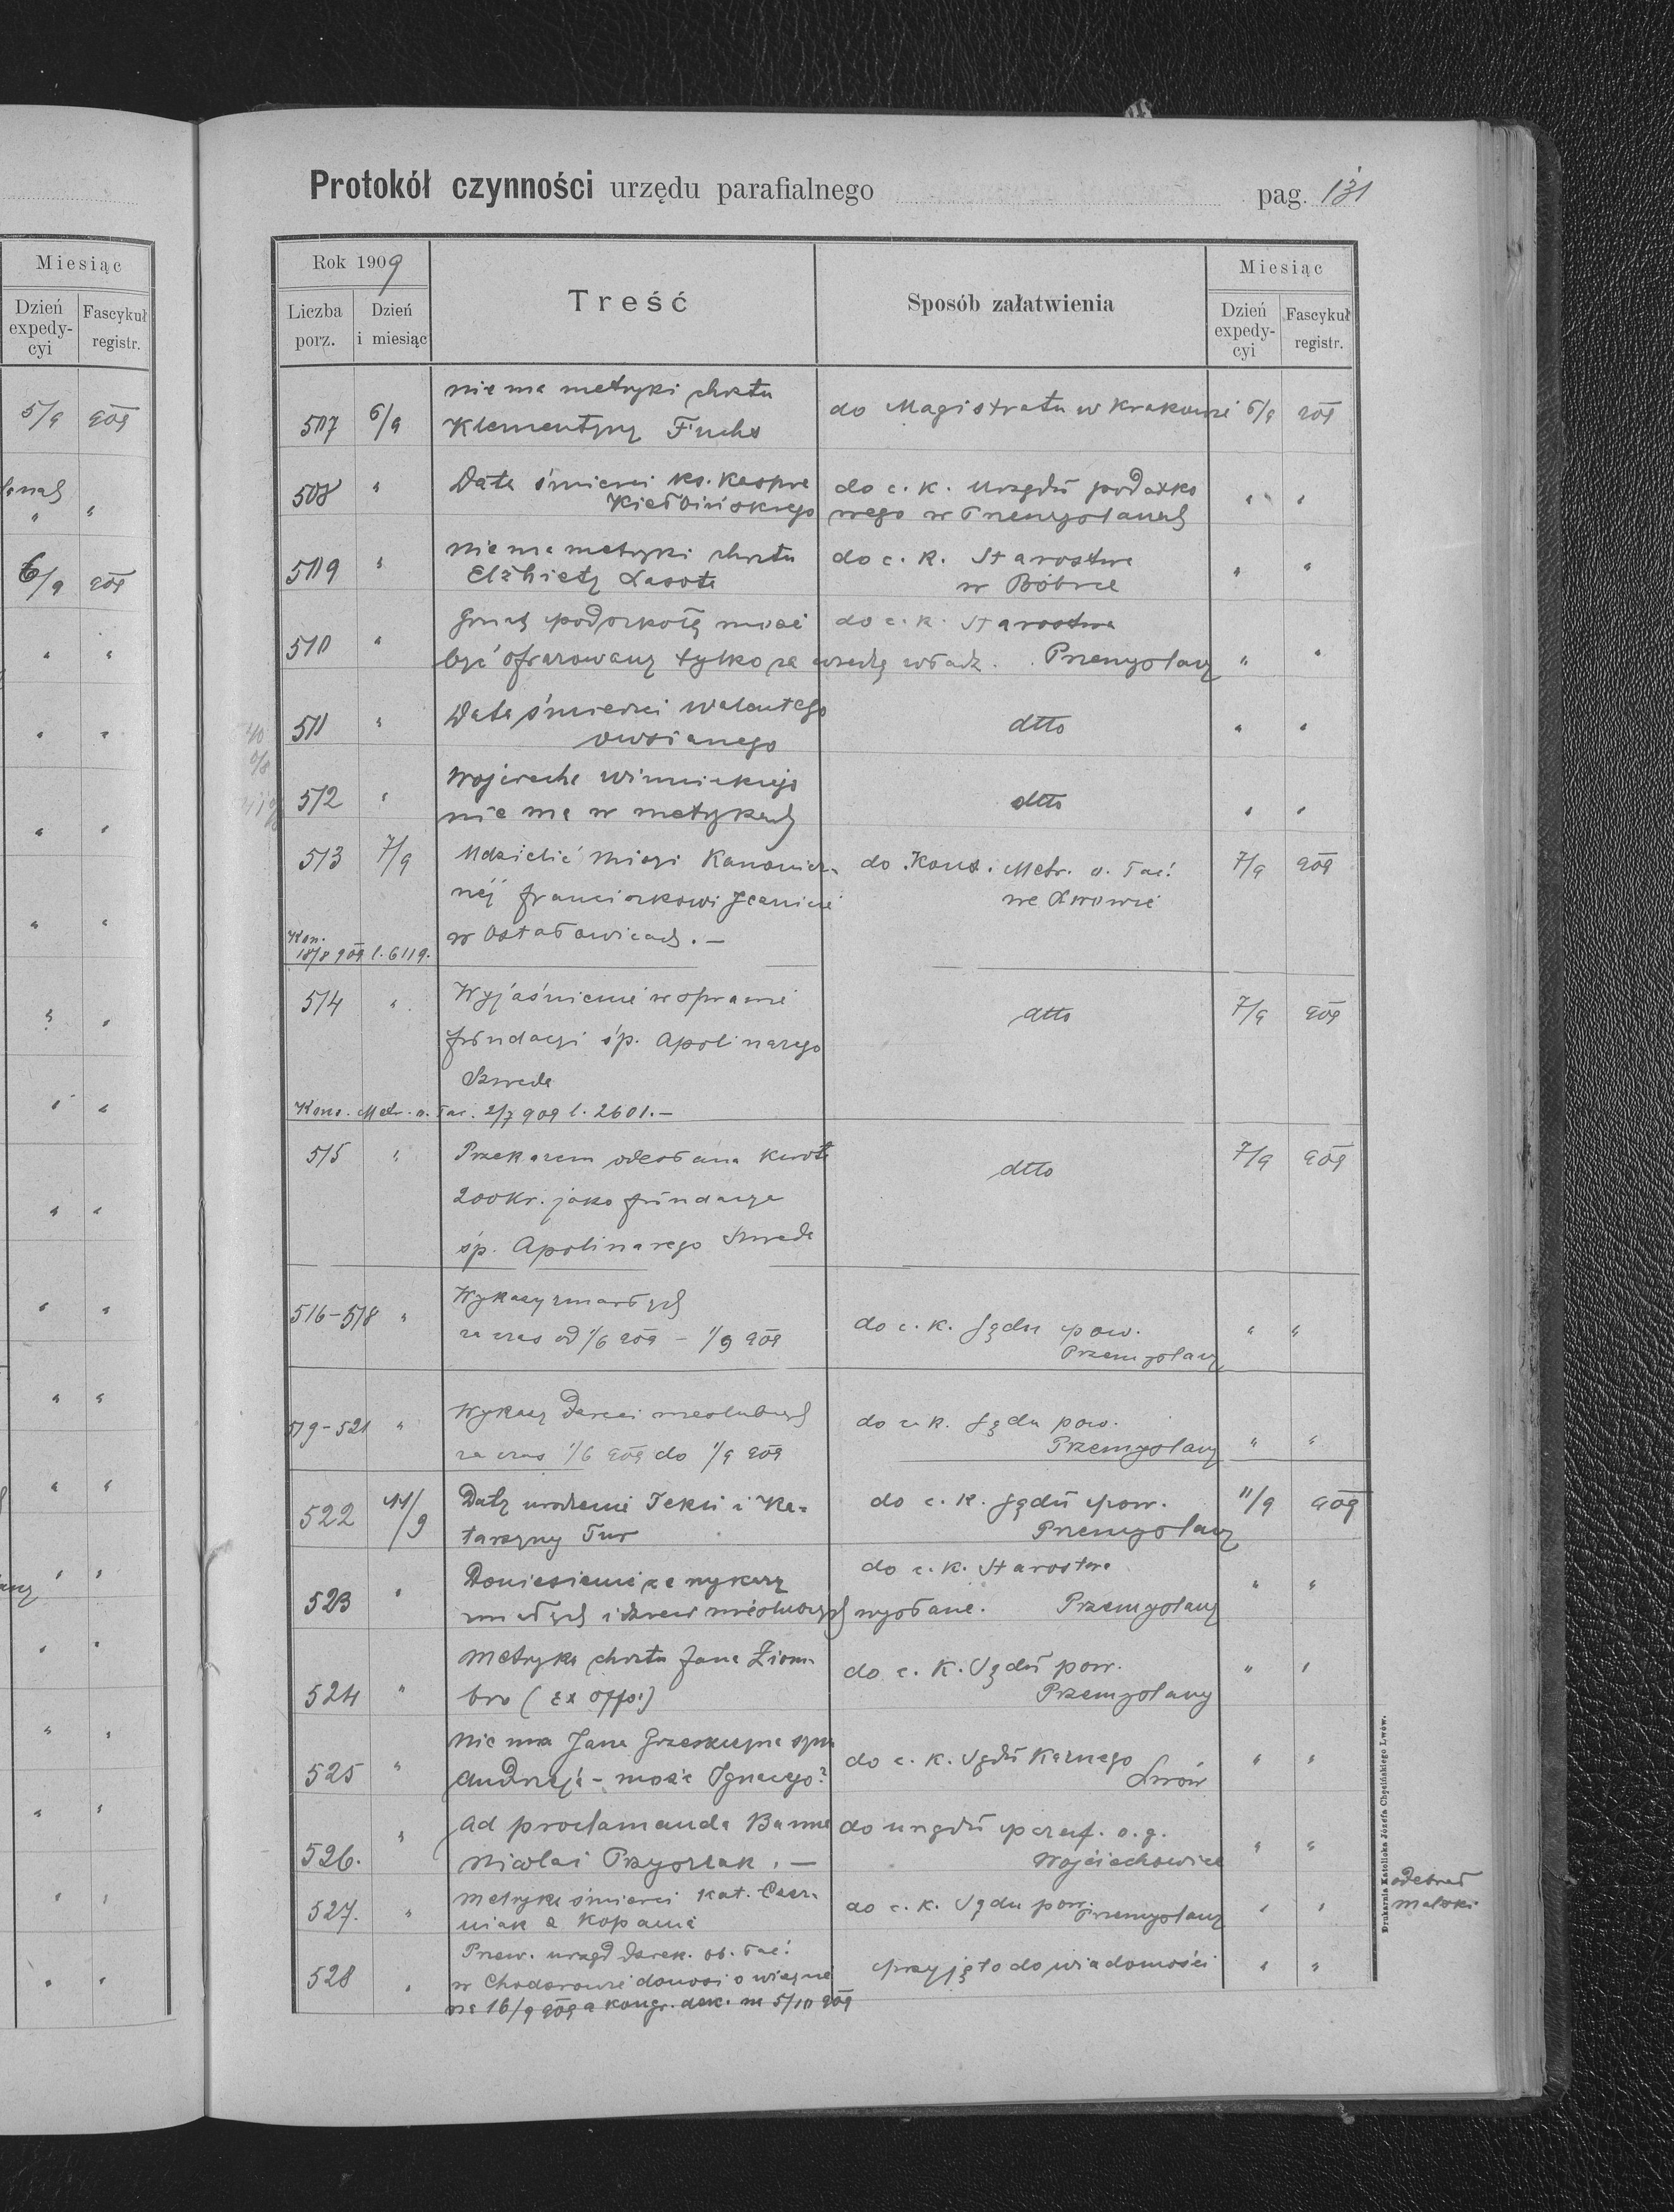 Protokół czynności urzędu parafialnego pag. 131
Miesiąc
Dzień expedycyi
Fascykuł registr.
5/9 909
6/9 909
Rok 1909
Liczba porz.
Dzień i miesiąc
Treść
Sposób załatwienia
Miesiąc
Dzień expedycyi
Fascykuł registr.
507 6/9 nie ma metryki chrztu
Klementyny Fuchs
do Magistratu w Krakowie 6/9 909
508 " Data śmierci ks. Kaspra
Kiełbińskiego
do c. k. urzędu podatko
wego w Przemyślanach " "
509 " nie ma metryki chrztu
Elżbiety Lasota
do c. k. Starostwa
w Bóbrce " "
510 " Grunt pod szkołę może do c. k. Starostwa
być ofiarowany tylko za wiedzą władz. Przemyślany " "
511 " Data śmierci Walentego
Owsianego
dtto " "
512 " Wojciecha Winnickiego
nie ma w metrykach
dtto " "
513 7/9 Udzielić misyi Kanonicz-
nej Franciszkowi
w Ostałowicach. —
do Kons. Metr. o. łać.
we Lwowie 7/9 909
Kon.
18/8 909 l. 6119.
514 " Wyjaśnienie w sprawie
fundacyi śp. Apolinarego
Szweda
dtto 7/9 909
Kons. Metr. o. łac. 2/7 909 l. 2601. —
515 " Przekazem odesłana kwota
200 Kr. jako fundacya
śp. Apolinarego Szweda
dtto 7/9 909
516-518 " Wykazy zmarłych
za czas od 1/6 909 – 1/9 909
do c. k. Sądu pow.
Przemyślany " "
519-521 " Wykazy dzieci nieślubnych
za czas 1/6 909 do 1/9 909
do c. k. Sądu pow.
Przemyślany " "
522 11/9 Daty urodzenia i Ka-
tarzyny Tur
do c. k. Sądu pow.
Przemyślany 11/9 909
523 " Doniesienie że wykazy
zmarłych i dzieci nieślubnych wysłane.
do c. k. Starostwa
Przemyślany " "
524 " Metryka chrztu Jana Ziom-
bro (ex offo:)
do c. k. Sądu pow.
Przemyślany " "
525 " Nie ma Jana syna
Andrzeja – może Ignacego?
do c. k. Sądu Karnego
Lwów " "
526. " Ad proclamanda Banna
Nicolai Przyszlak. —
do urzędu paraf. o. g.
Wojciechowice " "
527. " Metryka śmierci Kat. Czer-
niak a Kopania
do c. k. Sądu pow. Przemyślany " "
odebrał
528 " Przew. urząd dziek. ob. łać.
w Chodorowie donosi o
na 16/9 909 a kongr. dek. na 5/10 909
przyjęto do wiadomości " "
Drukarnia Katolicka Józefa Chęcińskiego Lwów.